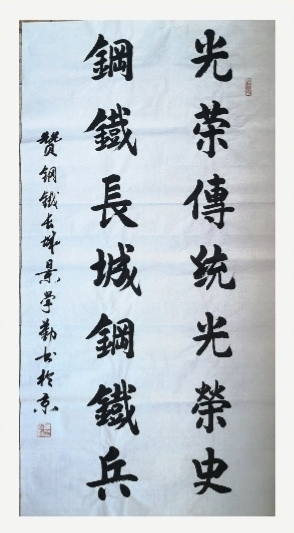 光荣傳统光榮史
鋼鐵長城鋼鐵兵
贊鋼鐵长城景学勤书於京